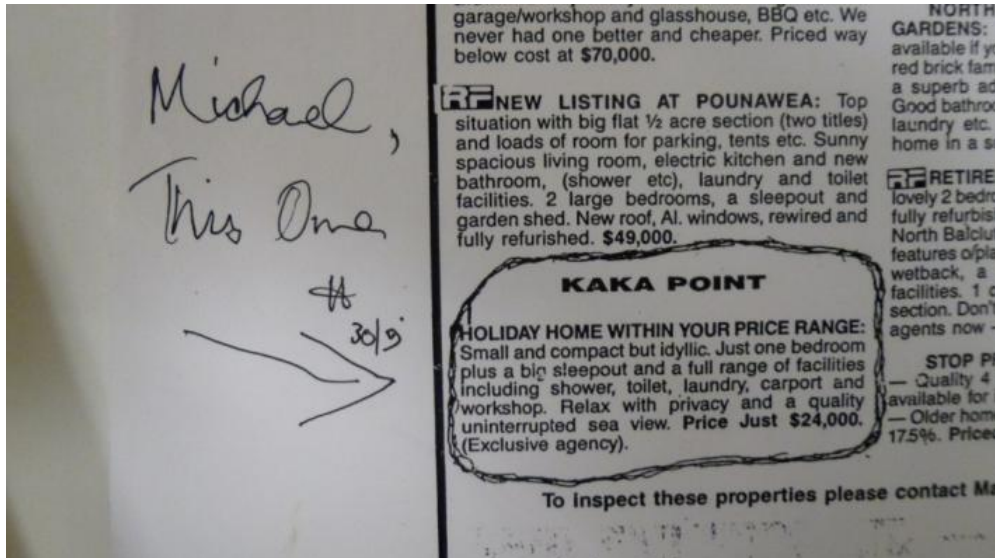 garage/workshop and glasshouse, BBQ etc. We
never had one better and cheaper. Priced way
below cost at $70,000.
RF NEW LISTING AT POUNAWEA: Top
situation with big flat ½ acre section (two titles)
and loads of room for parking, tents etc. Sunny
spacious living room, electric kitchen and new
bathroom, (shower etc), laundry and toilet
facilities. 2 large bedrooms, a sleepout and
garden shed. New roof, Al. windows, rewired and
fully refurished. $49,000.
KAKA POINT
HOLIDAY HOME WITHIN YOUR PRICE RANGE:
Small and compact but idyllic. Just one bedroom
plus a big sleepout and a full range of facilities
including shower, toilet, laundry, carport and
workshop. Relax with privacy and a quality
uninterrupted sea view. Price Just $24,000.
(Exclusive agency).
To inspect these properties please contact
Michael,
This One
30/9
NORTH
GARDENS:
available if
red brick
a superb
Good
laundry etc.
home in a
RF RETIRE
lovely 2
fully
North
features
wetback, a
facilities. 1
section. Don't
agents now -
STOP
— Quality 4
available for
— Older
17.5%.